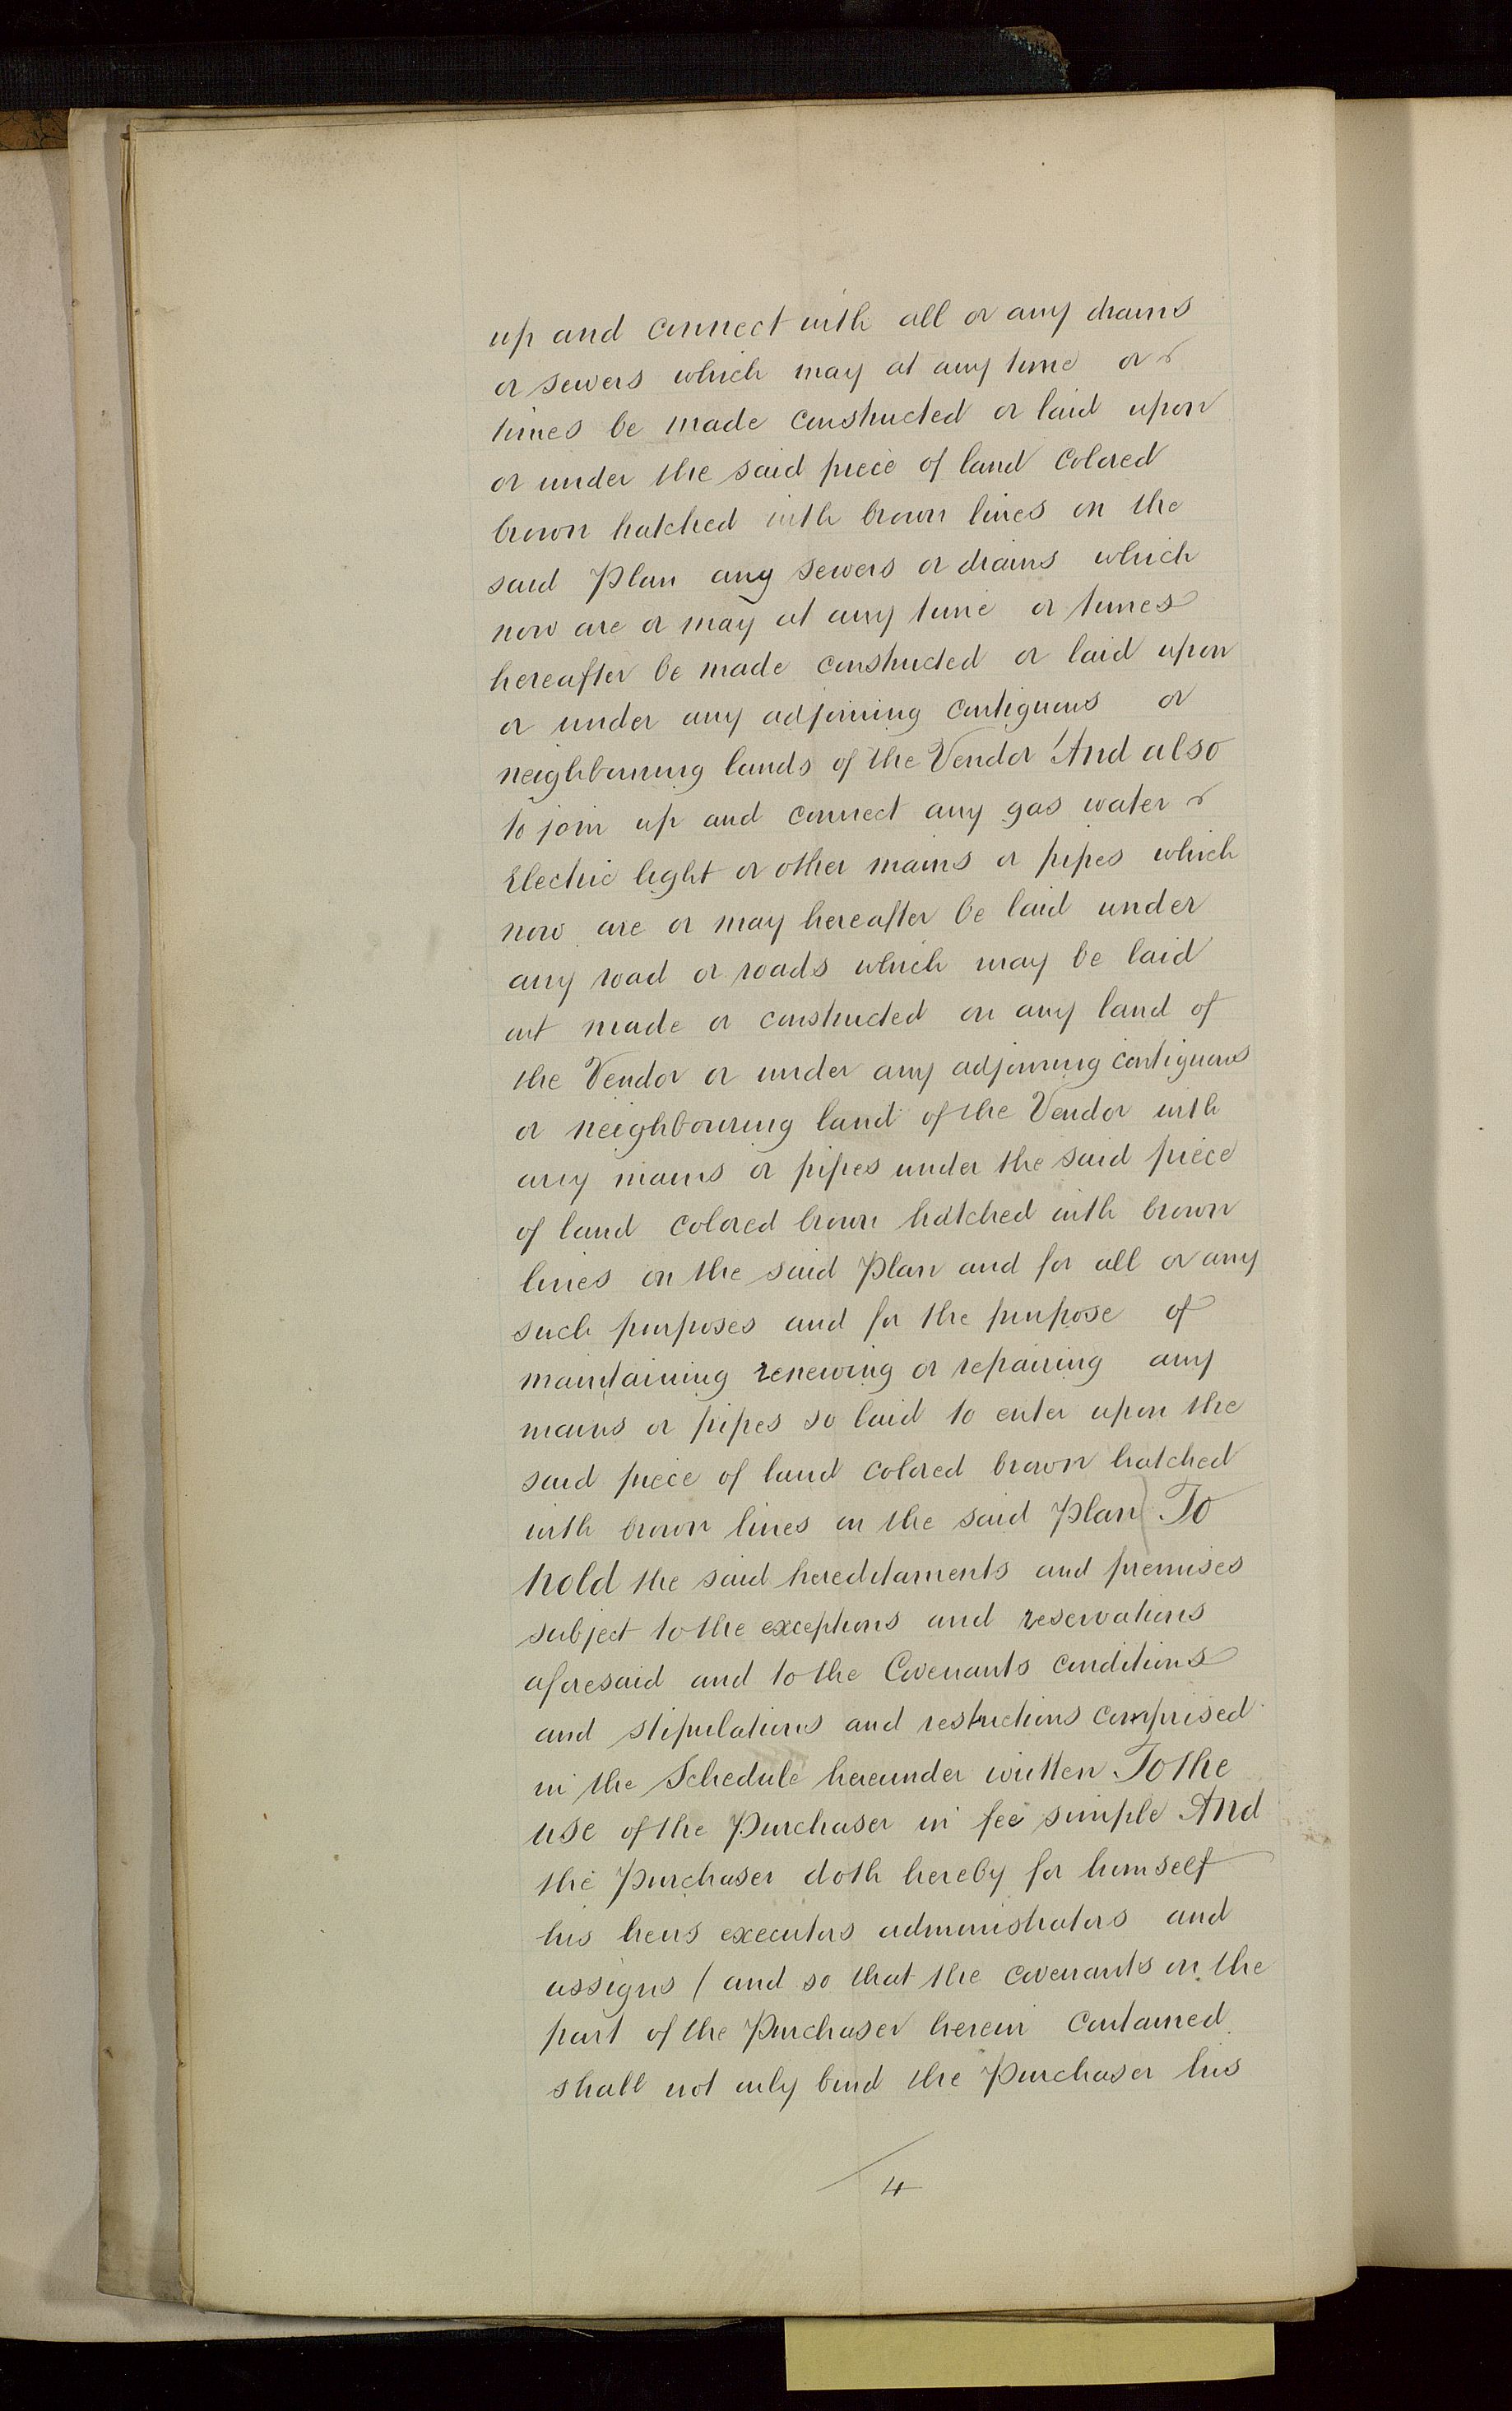 up and connect with all or any drains
or sewers which may at any time or
times be made constructed or laid upon
or under the said piece of land colored
brown hatched with brown lines on the
said Plan any sewers or drains which
now are or may at any time or times
hereafter be made constructed or laid upon
or under any adjoining contiguous or
neighbouring lands of the Vendor And also
to join up and connect any gas water
Electric light or other mains or pipes which
now are or may hereafter be laid under
any road or roads which may be laid
out made or constructed on any land of
the Vendor or under any adjoining contiguous
or neighbouring land of the Vendor with
any mains or pipes under the said piece
of land colored brown hatched with brown
lines on the said Plan and for all or any
such purposes and for the purpose of
maintaining renewing or repairing any
mains or pipes so laid to enter upon the
said piece of land colored brown hatched
with brown lines on the said Plan) To
hold the said hereditaments and premises
subject to the exceptions and reservations
aforesaid and to the Covenants conditions
and stipulations and restrictions comprised
in the Schedule hereunder written To the
use of the Purchaser in fee simple And
the Purchaser doth hereby for himself
his heirs executors administrators and
assigns (and so that the covenants on the
part of the Purchaser herein contained
shall not only bind the Purchaser his
4